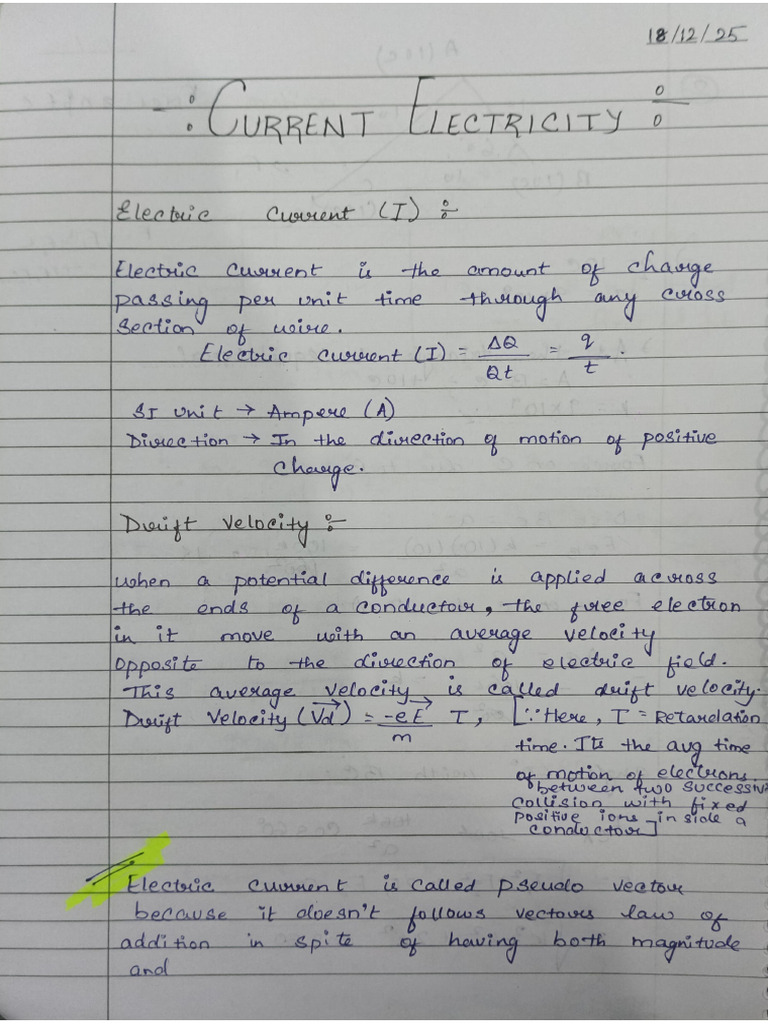 18/12/25
-: CURRENT ELECTRICITY ÷
Electric current (I) ÷
Electric current is the amount of charge
passing per unit time through any cross
section of wire.
Electric current (I) = ΔQ/Qt = q/t .
SI unit → Ampere (A)
Direction → In the direction of motion of positive
charge.
Drift velocity ÷
when a potential difference is applied across
the ends of a conductor, the free electron
in it move with an average velocity
opposite to the direction of electric field.
This average velocity is called drift velocity.
Drift velocity (V⃗d) = -eE⃗/m T, [∵ Here, T = Retarelation
time. It is the avg time
of motion of electrons
between two successive
collision with fixed
positive ions in side a
conductor]
Electric current is called pseudo vector
because it doesn't follows vectors law of
addition in spite of having both magnitude
and